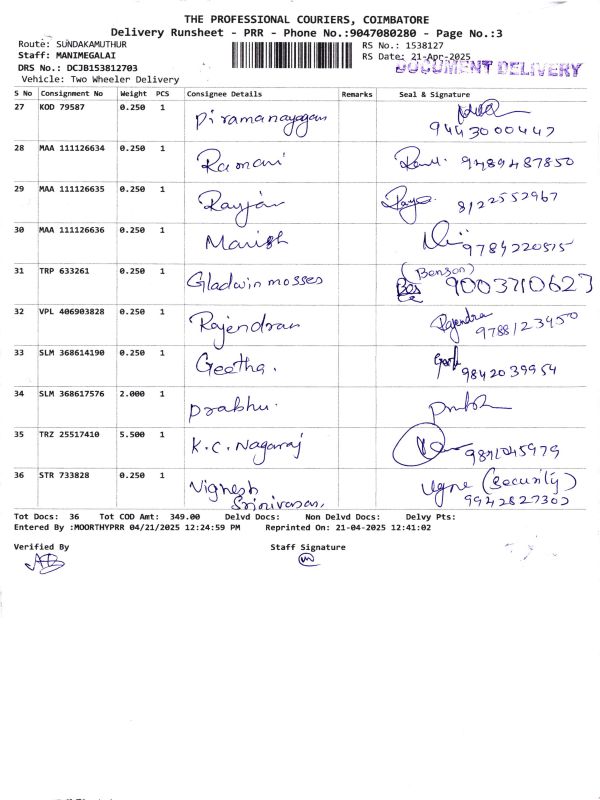 THE PROFESSIONAL COURIERS, COIMBATORE
Delivery Runsheet - PRR - Phone No.:9047080280 - Page No.:3
Route: SUNDAKAMUTHUR RS No.: 1538127
Staff: MANIMEGALAI RS Date: 21-Apr-2025
DRS No.: DCJB153812703 DOCUMENT DELIVERY
Vehicle: Two Wheeler Delivery
S No Consignment No Weight PCS Consignee Details Remarks Seal & Signature
27 KOD 79587 0.250 1 Piramanayagam 9443000447
28 MAA 111126634 0.250 1 Ramani 9489487850
29 MAA 111126635 0.250 1 8122552967
30 MAA 111126636 0.250 1 Manish 9789220515
31 TRP 633261 0.250 1 Gladwin mosses (Benson) 9003710627
32 VPL 406903828 0.250 1 Rajendran Rajendra 9788123450
33 SLM 368614190 0.250 1 Geetha. 9842039954
34 SLM 368617576 2.000 1 prabhu.
35 TRZ 25517410 5.500 1 K.C. Nagaraj
36 STR 733828 0.250 1 Vignesh Srinivasan, (Security) 9942827302
Tot Docs: 36 Tot COD Amt: 349.00 Delvd Docs: Non Delvd Docs: Delvy Pts:
Entered By :MOORTHYPRR 04/21/2025 12:24:59 PM Reprinted On: 21-04-2025 12:41:02
Verified By Staff Signature